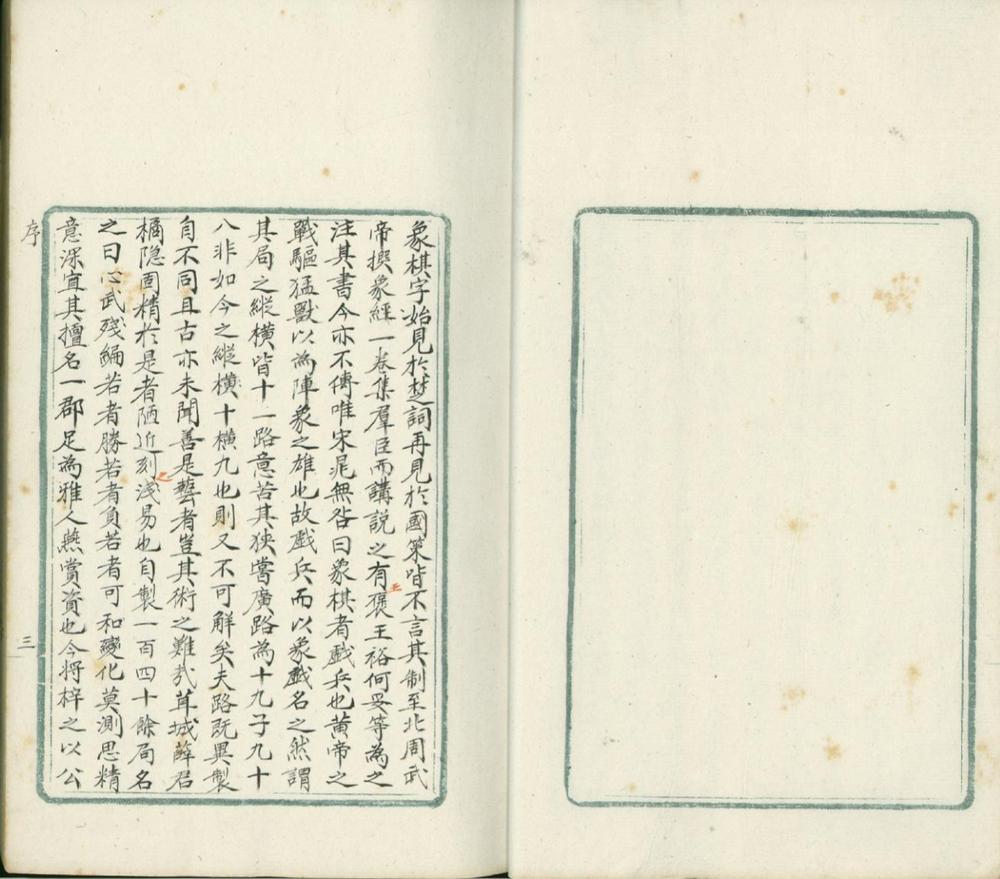 象棋字始見於楚詞再見於國策皆不言其制至北周武
帝撰象經一卷集羣臣而講說之有王褒王裕何妥等為之
注其書今亦不傳唯宋晁無咎曰象棋者戲兵也黄帝之
戰驅猛獸以為陣象之雄也故戲兵而以象戲名之然謂
其局之縱橫皆十一路意苦其狹嘗廣路為十九子九十
八非如今之縱橫十橫九也則又不可解矣夫路既異製
自不同且古亦未聞善是藝者豈其術之難哉茸城薛君
橘隐固精於是者陋近刻之淺易也自製一百四十餘局名
之曰心武殘編若者勝若者負若者可和變化莫測思精
意深宜其擅名一郡足為雅人燕賞資也今将梓之以公
序
三